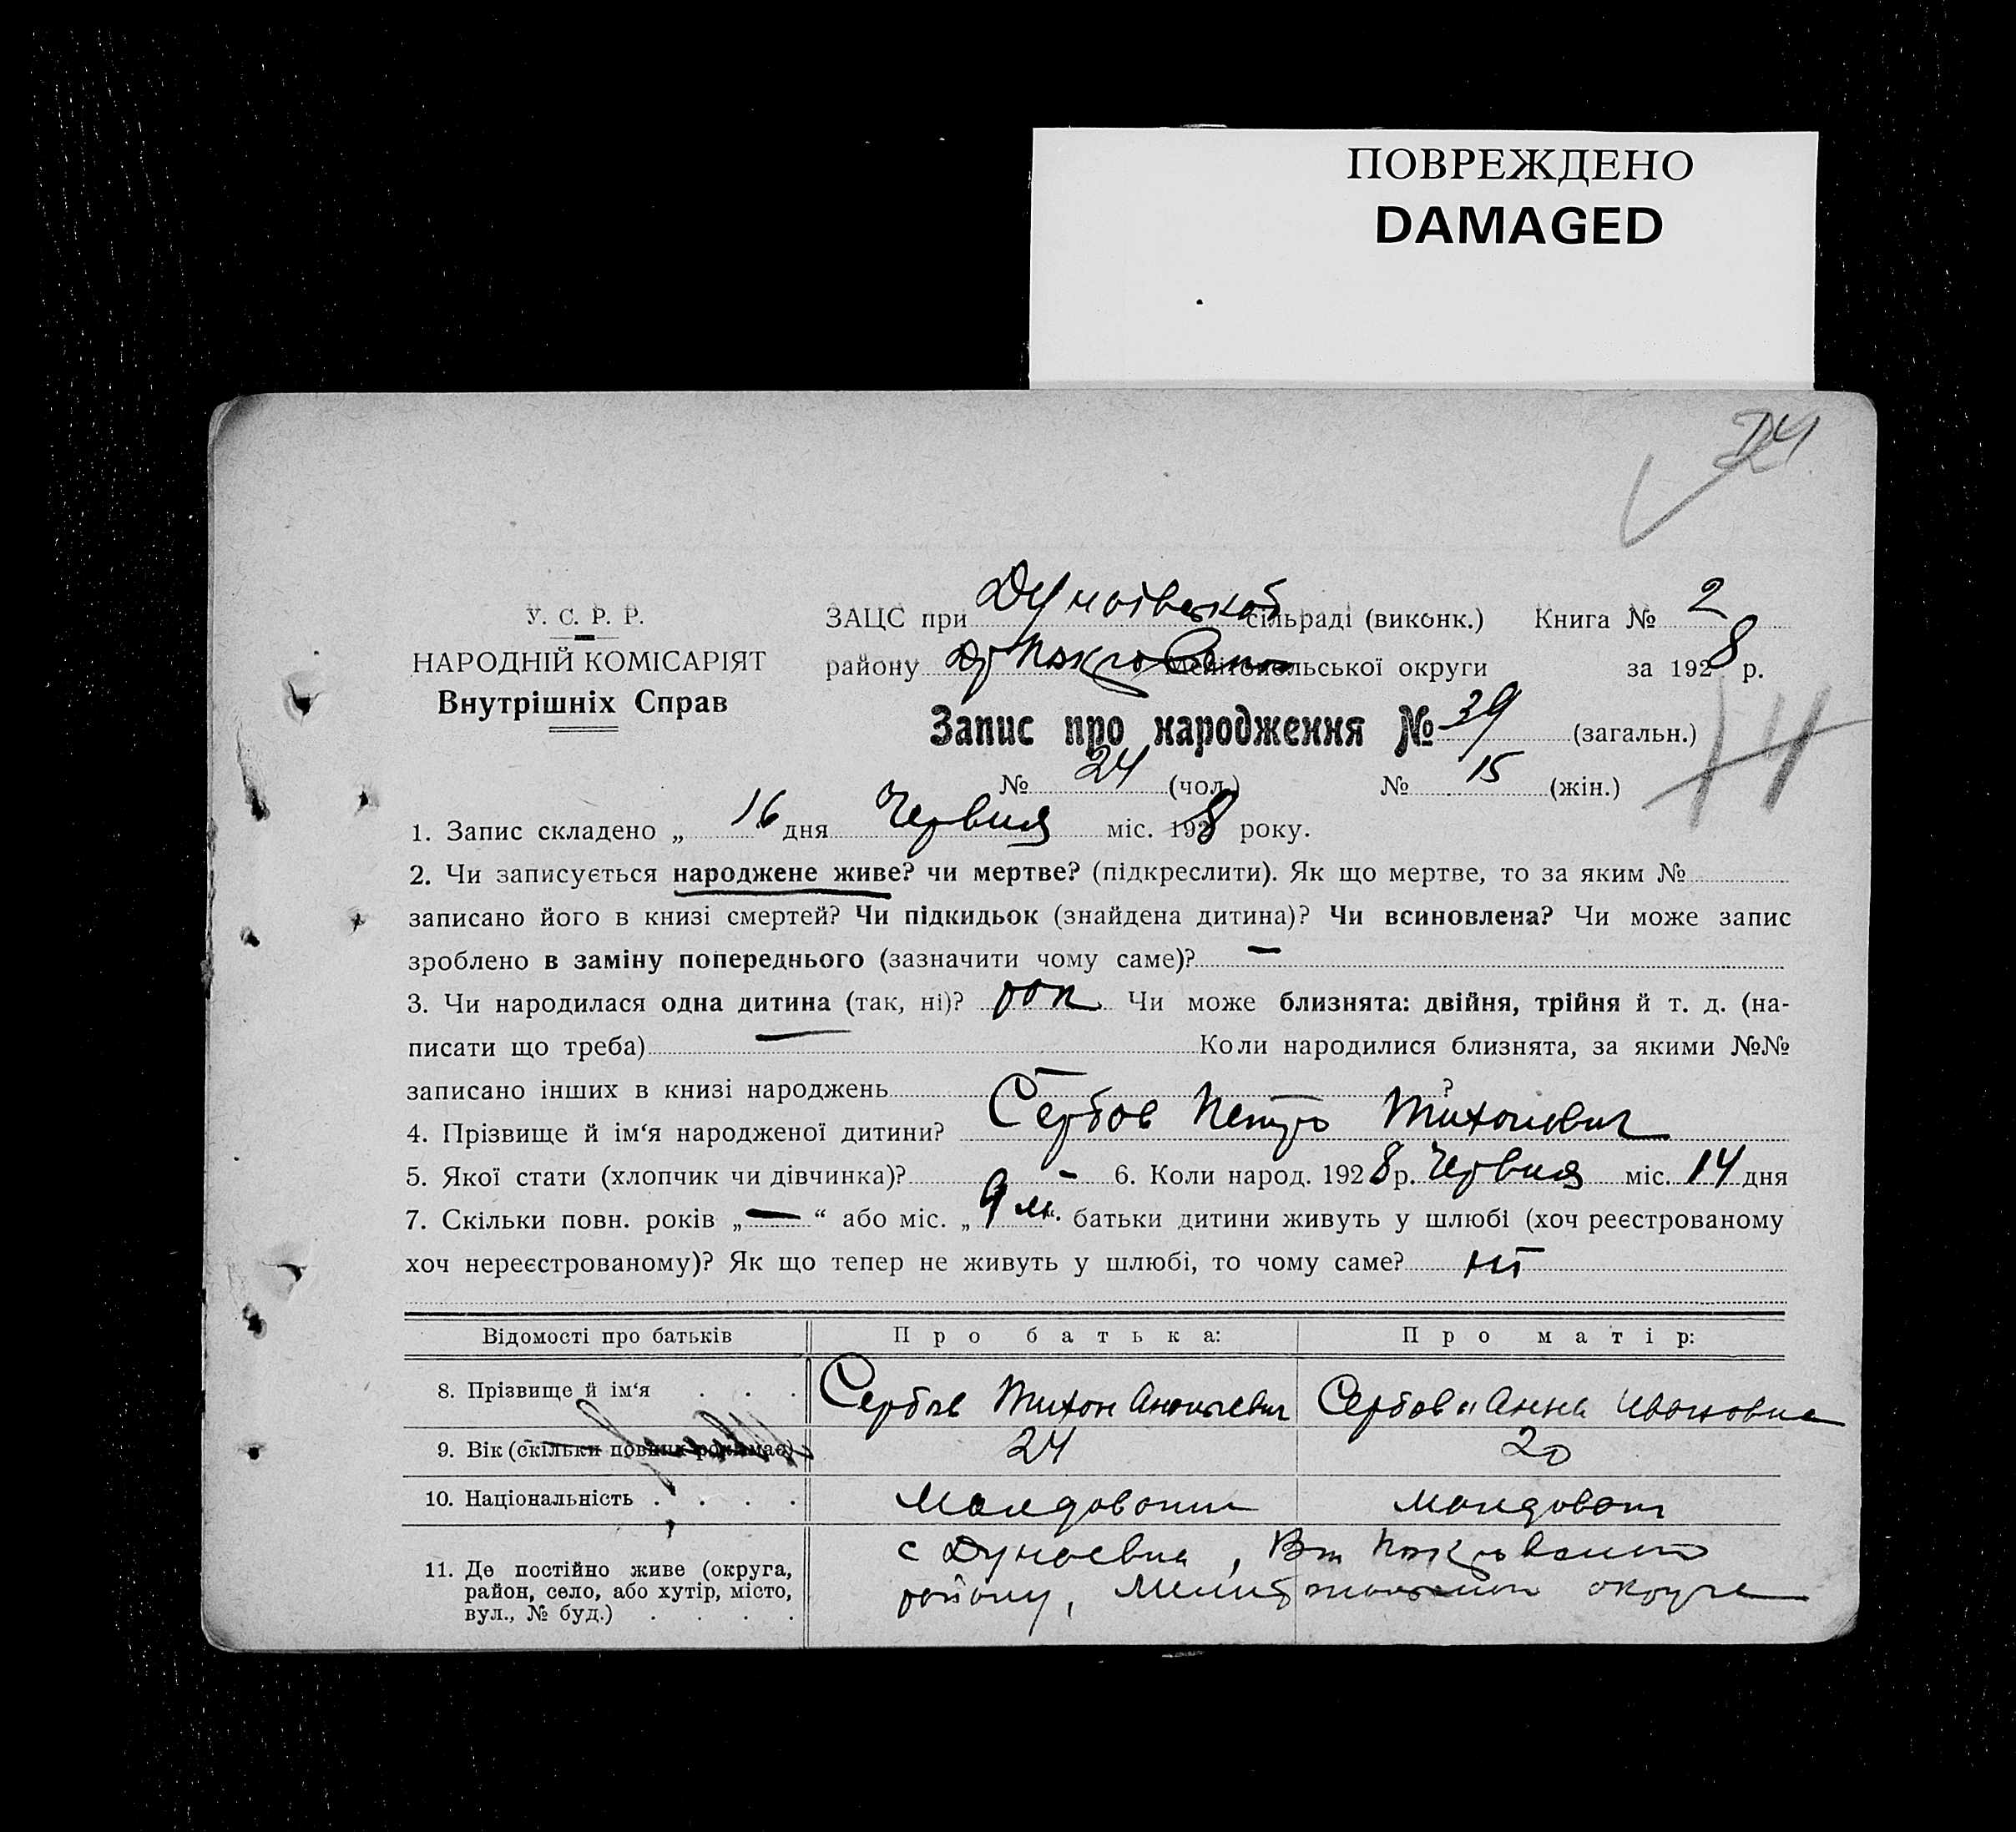 ПОВРЕЖДЕНО
DAMAGED
24
У. С. Р. Р.
НАРОДНІЙ КОМІСАРІЯТ
Внутрішніх Справ
ЗАЦС при Дунаївській сільраді (виконк.) Книга № 2
району Мелітопольської округи за 1928 р.
Запис про народження № 39 (загальн.)
№ 24 (чол.) № 15 (жін.)
1. Запис складено „ 16 дня Червня міс. 1928 року.
2. Чи записується народжене живе? чи мертве? (підкреслити). Як що мертве, то за яким №
записано його в книзі смертей? Чи підкидьок (знайдена дитина)? Чи всиновлена? Чи може запис
зроблено в заміну попереднього (зазначити чому саме)? —
3. Чи народилася одна дитина (так, ні)? Чи може близнята: двійня, трійня й т. д. (на-
писати що треба) — Коли народилися близнята, за якими №№
записано інших в книзі народжень — ?
4. Прізвище й ім‘я народженої дитини? Сербов Петро Тихонович
5. Якої стати (хлопчик чи дівчинка)? - 6. Коли народ. 1928 р. Червня міс. 14 дня
7. Скільки повн. років „ — “ або міс. „ 9 м. батьки дитини живуть у шлюбі (хоч реєстрованому
хоч нереєстрованому)? Як що тепер не живуть у шлюбі, то чому саме? ні
Відомості про батьків Про батька: Про матір:
8. Прізвище й ім‘я . . . Сербов Тихон Сербова Анна Ивановна
9. Вік (скільки повних років має) 24 20
10. Національність . . . . Молдован Молдован
11. Де постійно живе (округа, с Дунаевка,
район, село, або хутір, місто, району, округи
вул., № буд.) . . . .